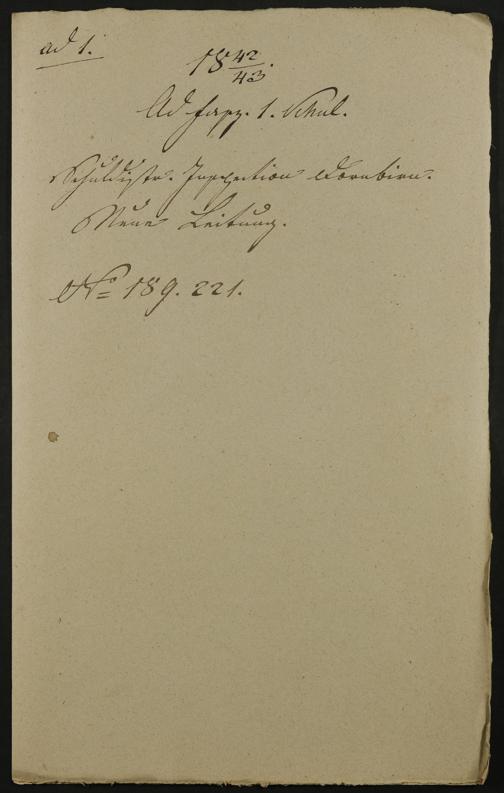 ad 1.
18 42/43.
Ad fasz. 1. Schul.
Schuldistr. Inspection Dornbirn.
Neue Leitung.
No 189. 221.